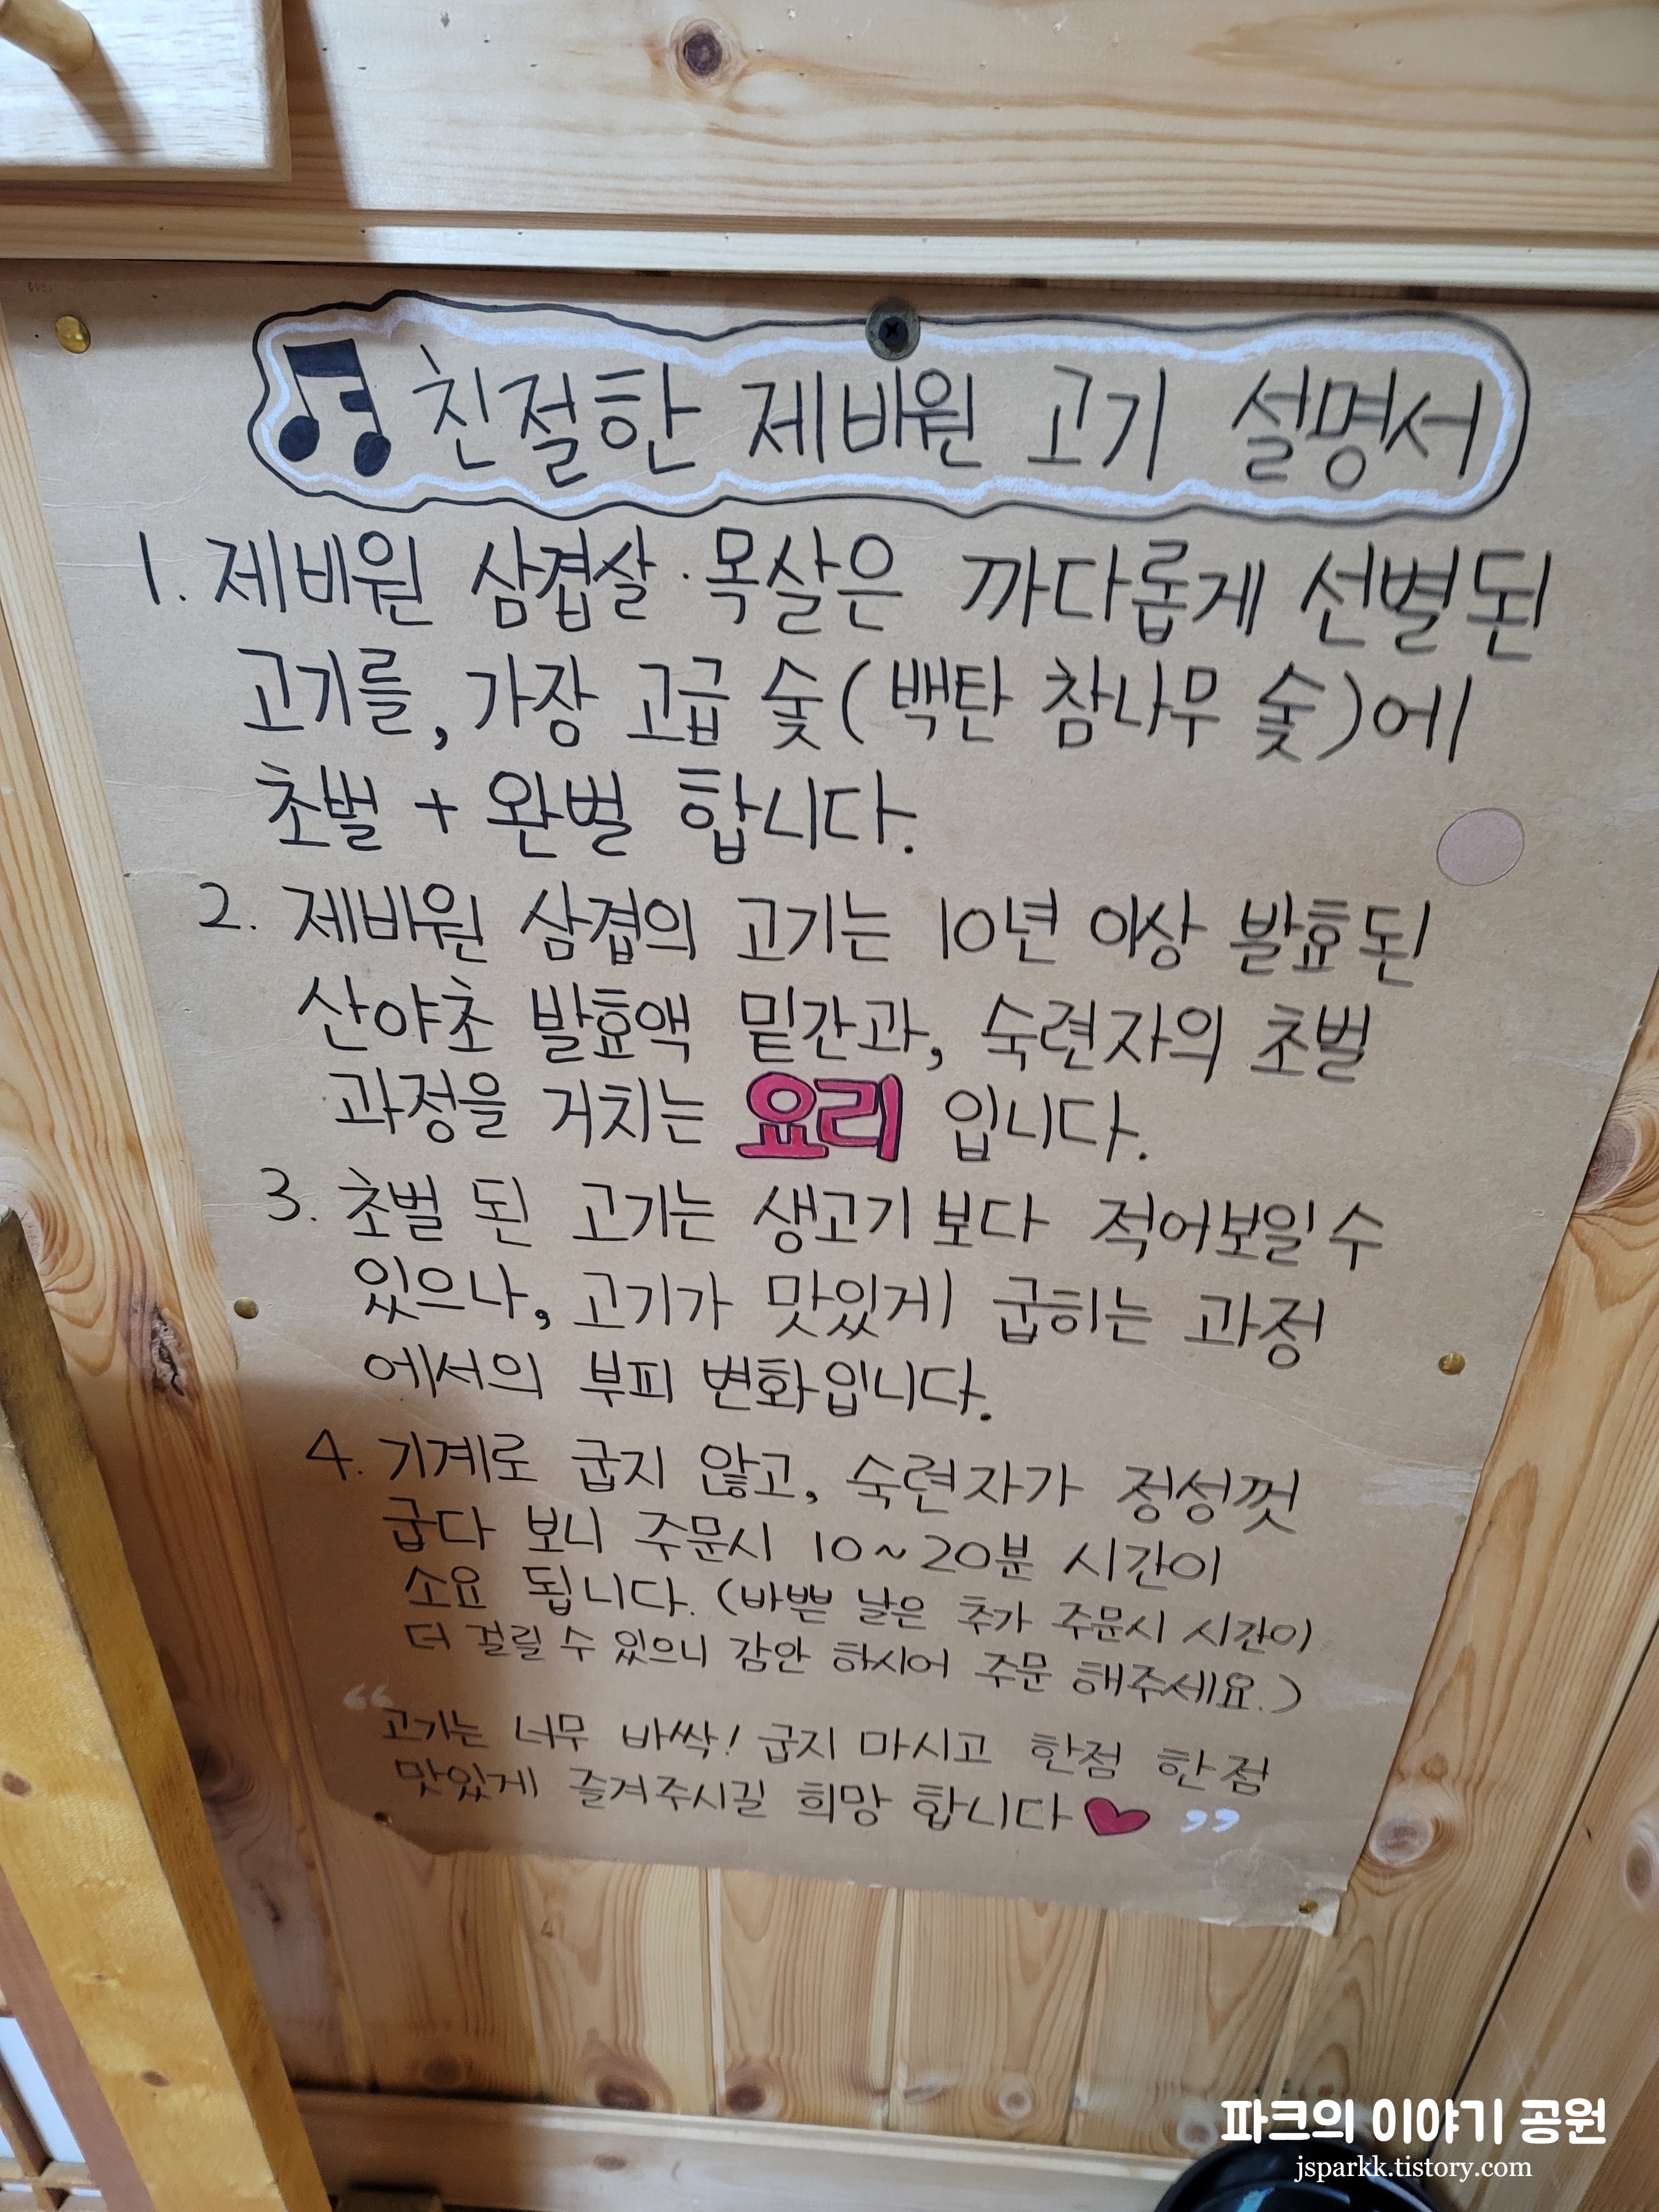 친절한 제비원 고기 설명서
1. 제비원 삼겹살·목살은 까다롭게 선별된
고기를, 가장 고급 숯(백탄 참나무 숯)에
초벌 + 완벌 합니다.
2. 제비원 삼겹의 고기는 10년 이상 발효된
산야초 발효액 밑간과, 숙련자의 초벌
과정을 거치는 요리 입니다.
3. 초벌 된 고기는 생고기 보다 적어보일 수
있으나, 고기가 맛있게 굽히는 과정
에서의 부피 변화입니다.
4. 기계로 굽지 않고, 숙련자가 정성껏
굽다 보니 주문시 10~20분 시간이
소요 됩니다. (바쁜 날은 추가 주문시 시간이
더 걸릴 수 있으니 감안 하시어 주문 해주세요.)
“고기는 너무 바싹! 굽지 마시고 한점 한점
맛있게 즐겨주시길 희망 합니다♥”
파크의 이야기 공원
jsparkk.tistory.com